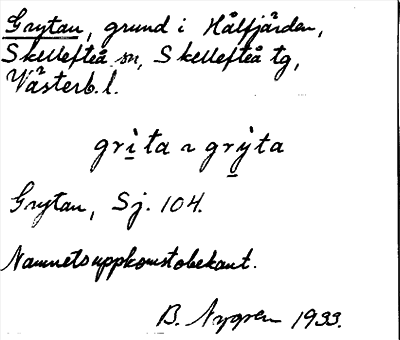 Grytan, grund i Hålfjärden,
Skellefteå sn, Skellefteå tg,
Västerb. l.
grìta ~ grỳta
Grytan, Sj. 104.
Namnets uppkomst obekant.
B. Nygren 1933.